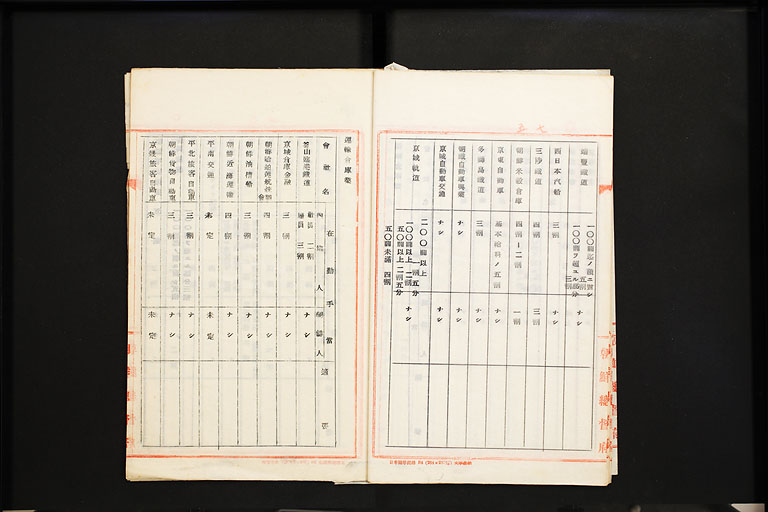 七五
端豐鐵道 一〇〇圓迄ノ額ニ對シ 五割 一〇〇圓ヲ超ユル部分 三割 ナシ
西日本汽船 三割 ナシ
三陟鐵道 四割 三割
朝鮮米穀倉庫 四割ー二割 一割
京東自動車 基本給料ノ五割 ナシ
多獅島鐵道 三割 ナシ
朝鐵自動車興業 ナシ ナシ
京城自動車交通 ナシ ナシ
京城軌道 二〇〇圓以上 一割五分 一〇〇圓以上 二割 五〇圓以上 二割五分 五〇圓未滿 四割 ナシ
朝鮮總督府
運輸倉庫業
會社名 在勤手當 內地人 朝鮮人 摘要
釜山臨港鐵道 職員 二割 傭員 三割 ナシ
京城倉庫金融 三割 ナシ
四割 ナシ
三割 ナシ
朝鮮近海運輸 四割 ナシ
平南交通 未定 未定
平北旅客自動車 三割 ナシ
朝鮮貨物自動車 三割 ナシ
京春旅客自動車 未定 未定